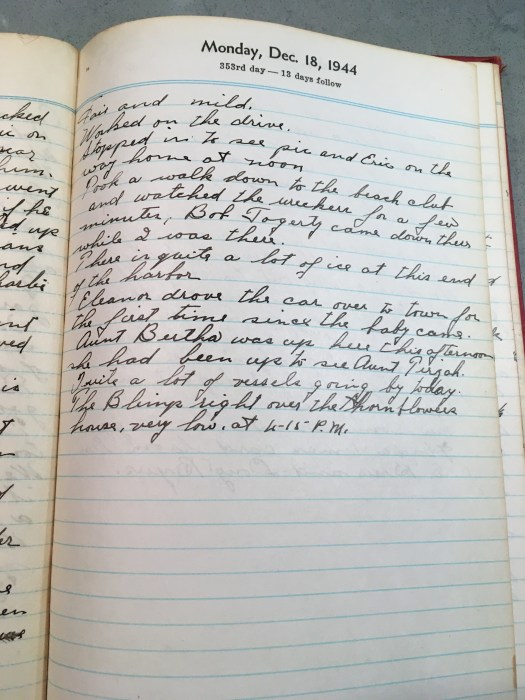 Monday, Dec. 18, 1944
353rd day — 13 days follow
Fair and mild.
Worked on the drive.
Stopped in to see pic and Eric on the
way home at noon
Took a walk down to the beach club
and watched the wreckers for a few
minutes, Bob Fogerty came down there
while I was there.
There is quite a lot of ice at this end
of the harbor
Eleanor drove the car over to town for
the first time since the baby came.
Aunt Bertha was up here this afternoon
she had been up to see Aunt Tirzah.
Quite a lot of vessels going by today.
The Blimps right over the
house, very low. at 4-15 P.M.